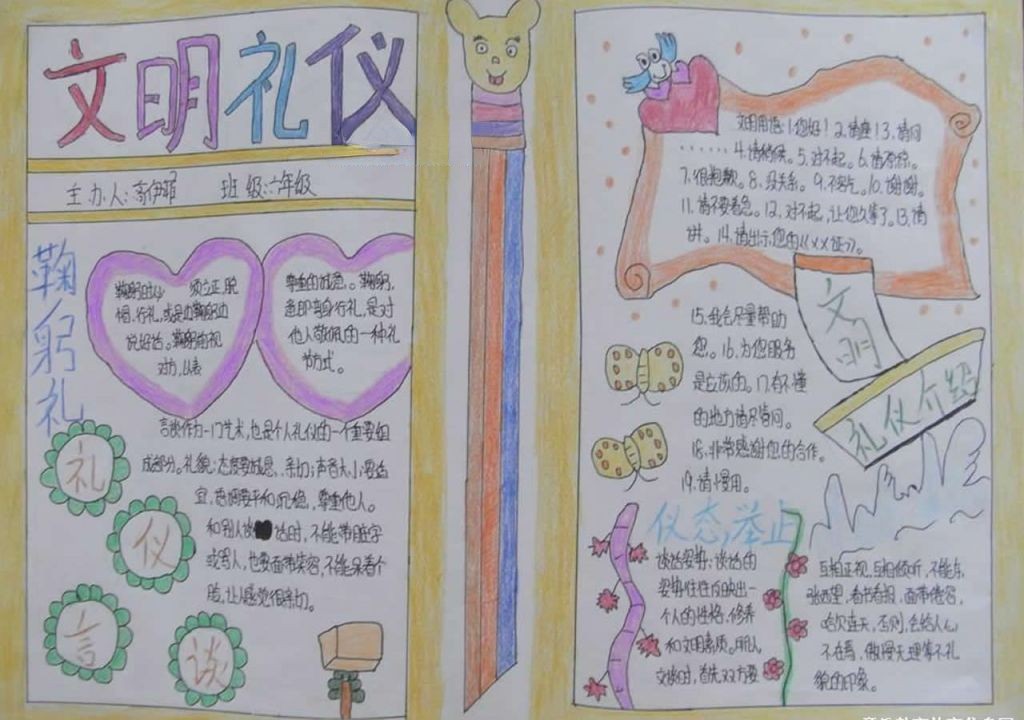 文明礼仪
主办人:高伊
班级:六年级
鞠躬礼
鞠躬时 须立正,脱
帽,行礼,或是边鞠躬边
说好话。鞠躬前视
对方,以表
尊重的诚意。。鞠躬,
意即弯身行礼,是对
他人敬佩的一种礼
节方式。
言谈作为一门艺术,也是个人礼仪的一个重要组
成部分。礼貌:态度要诚恳、亲切;声音大小要适
宜,语调要平和沉稳,尊重他人。
和别人谈 话时,不能带脏字
或骂人,也要面带笑容,不能呆着个
脸,让人感觉很亲切。
礼
仪
言
谈
文明用语:1.您好!2.请坐!3.请问
······4.请稍候。5.对不起。6.请原谅。
7.很抱歉。8.没关系。9.不客气。10.谢谢。
11.请不要着急。12.对不起,让您久等了。13.请
讲。14.请出示您的《××证》。
15.我会尽量帮助
您。16.为您服务
是应该的。17.有不懂
的地方请尽管问。
18.非常感谢您的合作。
19.请慢用。
文明
礼仪介绍
仪态举止
谈话姿势:谈话的
姿势往往反映出一
个人的性格,修养
和文明素质。所以
交谈时,首先双方要
互相正视,互相倾听,不能东
张西望,看书看报,面带倦容,
哈欠连天,否则,会给人心
不在焉,傲慢无理等不礼
貌的印象。